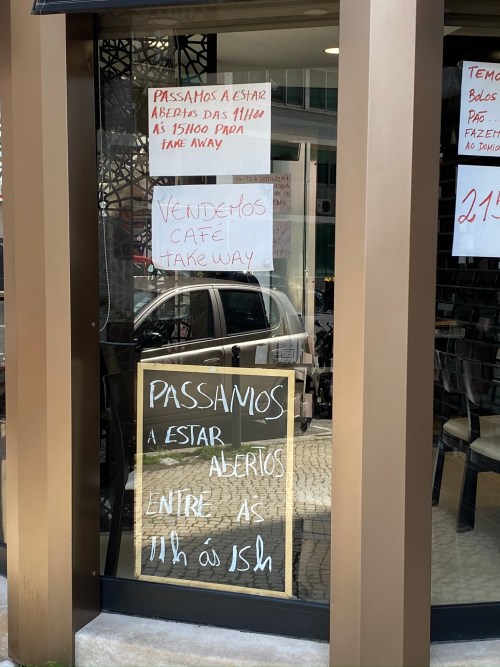 PASSAMOS A ESTAR
ABERTOS DAS 11H00
ÁS 15H00 PARA
TAKE AWAY
VENDEMOS
CAFÉ
TAKE WAY
PASSAMOS
A ESTAR
ABERTOS
ENTRE ÁS
11h ás 15h
TEMO
BOLOS
PÃO...
FAZEM
AO DOMIC
215